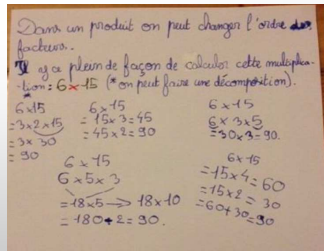 Dans un produit on peut changer l'ordre des
facteurs.
Il y a plein de façon de calculer cette multiplica-
-tion : 6 × 15 (*on peut faire une décomposition).
6×15
= 3×2×15
= 3×30
= 90
6×15
= 15×3=45
= 45×2=90
6×15
6×3×5
=30×3=90.
6×15
6×5×3
=18×5 → 18×10
= 180÷2=90.
6×15
=15×4=60
=15×2=30
=60+30=90